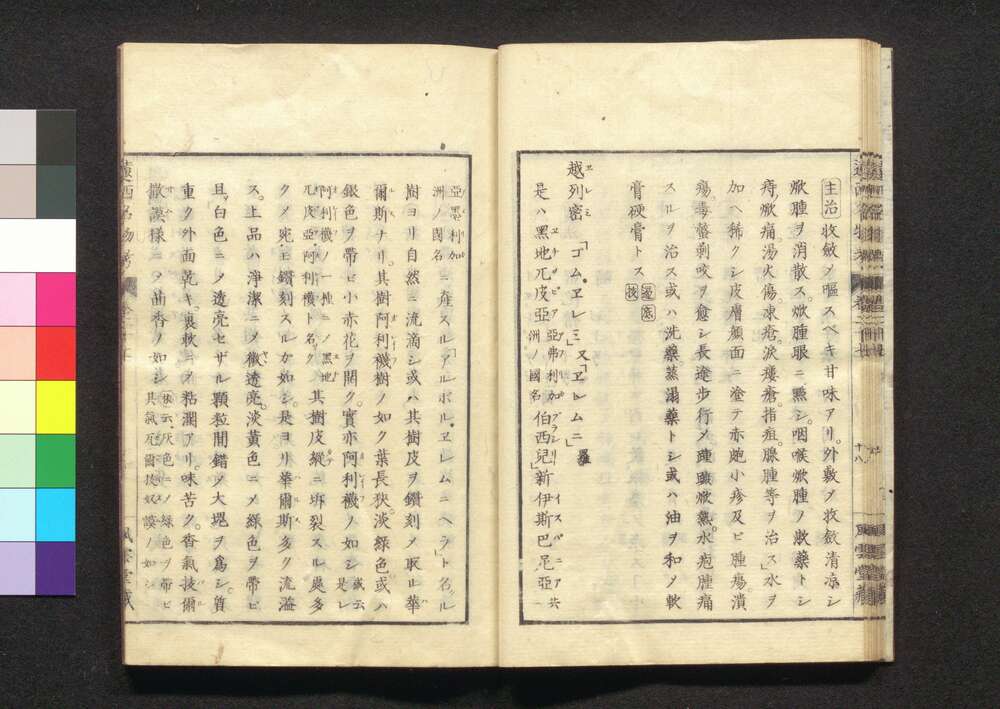 主治 收斂ノ嘔スベキ甘味アリ。外敷ヲ收斂清凉シ
焮腫ヲ消散ス。焮腫眼ニ點シ。咽喉焮腫ノ漱藥トシ
痔焮痛湯火傷。凍瘡。涙瘻瘡。指疽。腺腫等ヲ治ス」水ヲ
加ヘ稀クシ皮膚顔面ニ塗テ赤皰小疹及ビ腫瘍潰
瘍毒螫刺咬ヲ愈シ長途步行〆
焮熱。水疱腫痛
スルヲ治ス或ハ洗藥蒸溻藥トシ或ハ油ヲ和〆軟
膏硬膏トス
越列密「ゴムヱレミ」又「ヱレムニ」羅
エレミ
是ハ黑地兀皮亞亞弗利加洲ノ國名伯西兒」新伊斯巴尼亞共ニ
亞墨利加洲ノ國名ニ産スル「アルボルヱレムニヘラ」ト名クル
樹ヨリ自然ニ流滴シ或ハ其樹皮ヲ鑽刻〆取ル華
爾斯ナリ。其樹阿利襪樹ノ如ク葉長狹。淡綠色或ハ
銀色ヲ帶ビ小赤花ヲ開ク。實亦阿利襪ノ如シ或云是レ
阿利襪ノ一種ニ〆黑地兀皮亞阿利襪ト名ク其樹皮縱ニ坼裂スル𠙚多
ク〆宛モ鑽刻スルカ如シ。是ヨリ華爾斯多ク流溢
ス。上品ハ淨潔ニ〆微透亮。淡黃色ニ〆綠色ヲ帶ビ
且白色ニ〆透亮セザル顆粒間錯〆大塊ヲ爲シ。質
重ク外面乾キ。裏軟ニ〆粘潤アリ。味苦ク。香氣
撒謨樣ニ〆茴香ノ如シ
風雲堂藏
十八